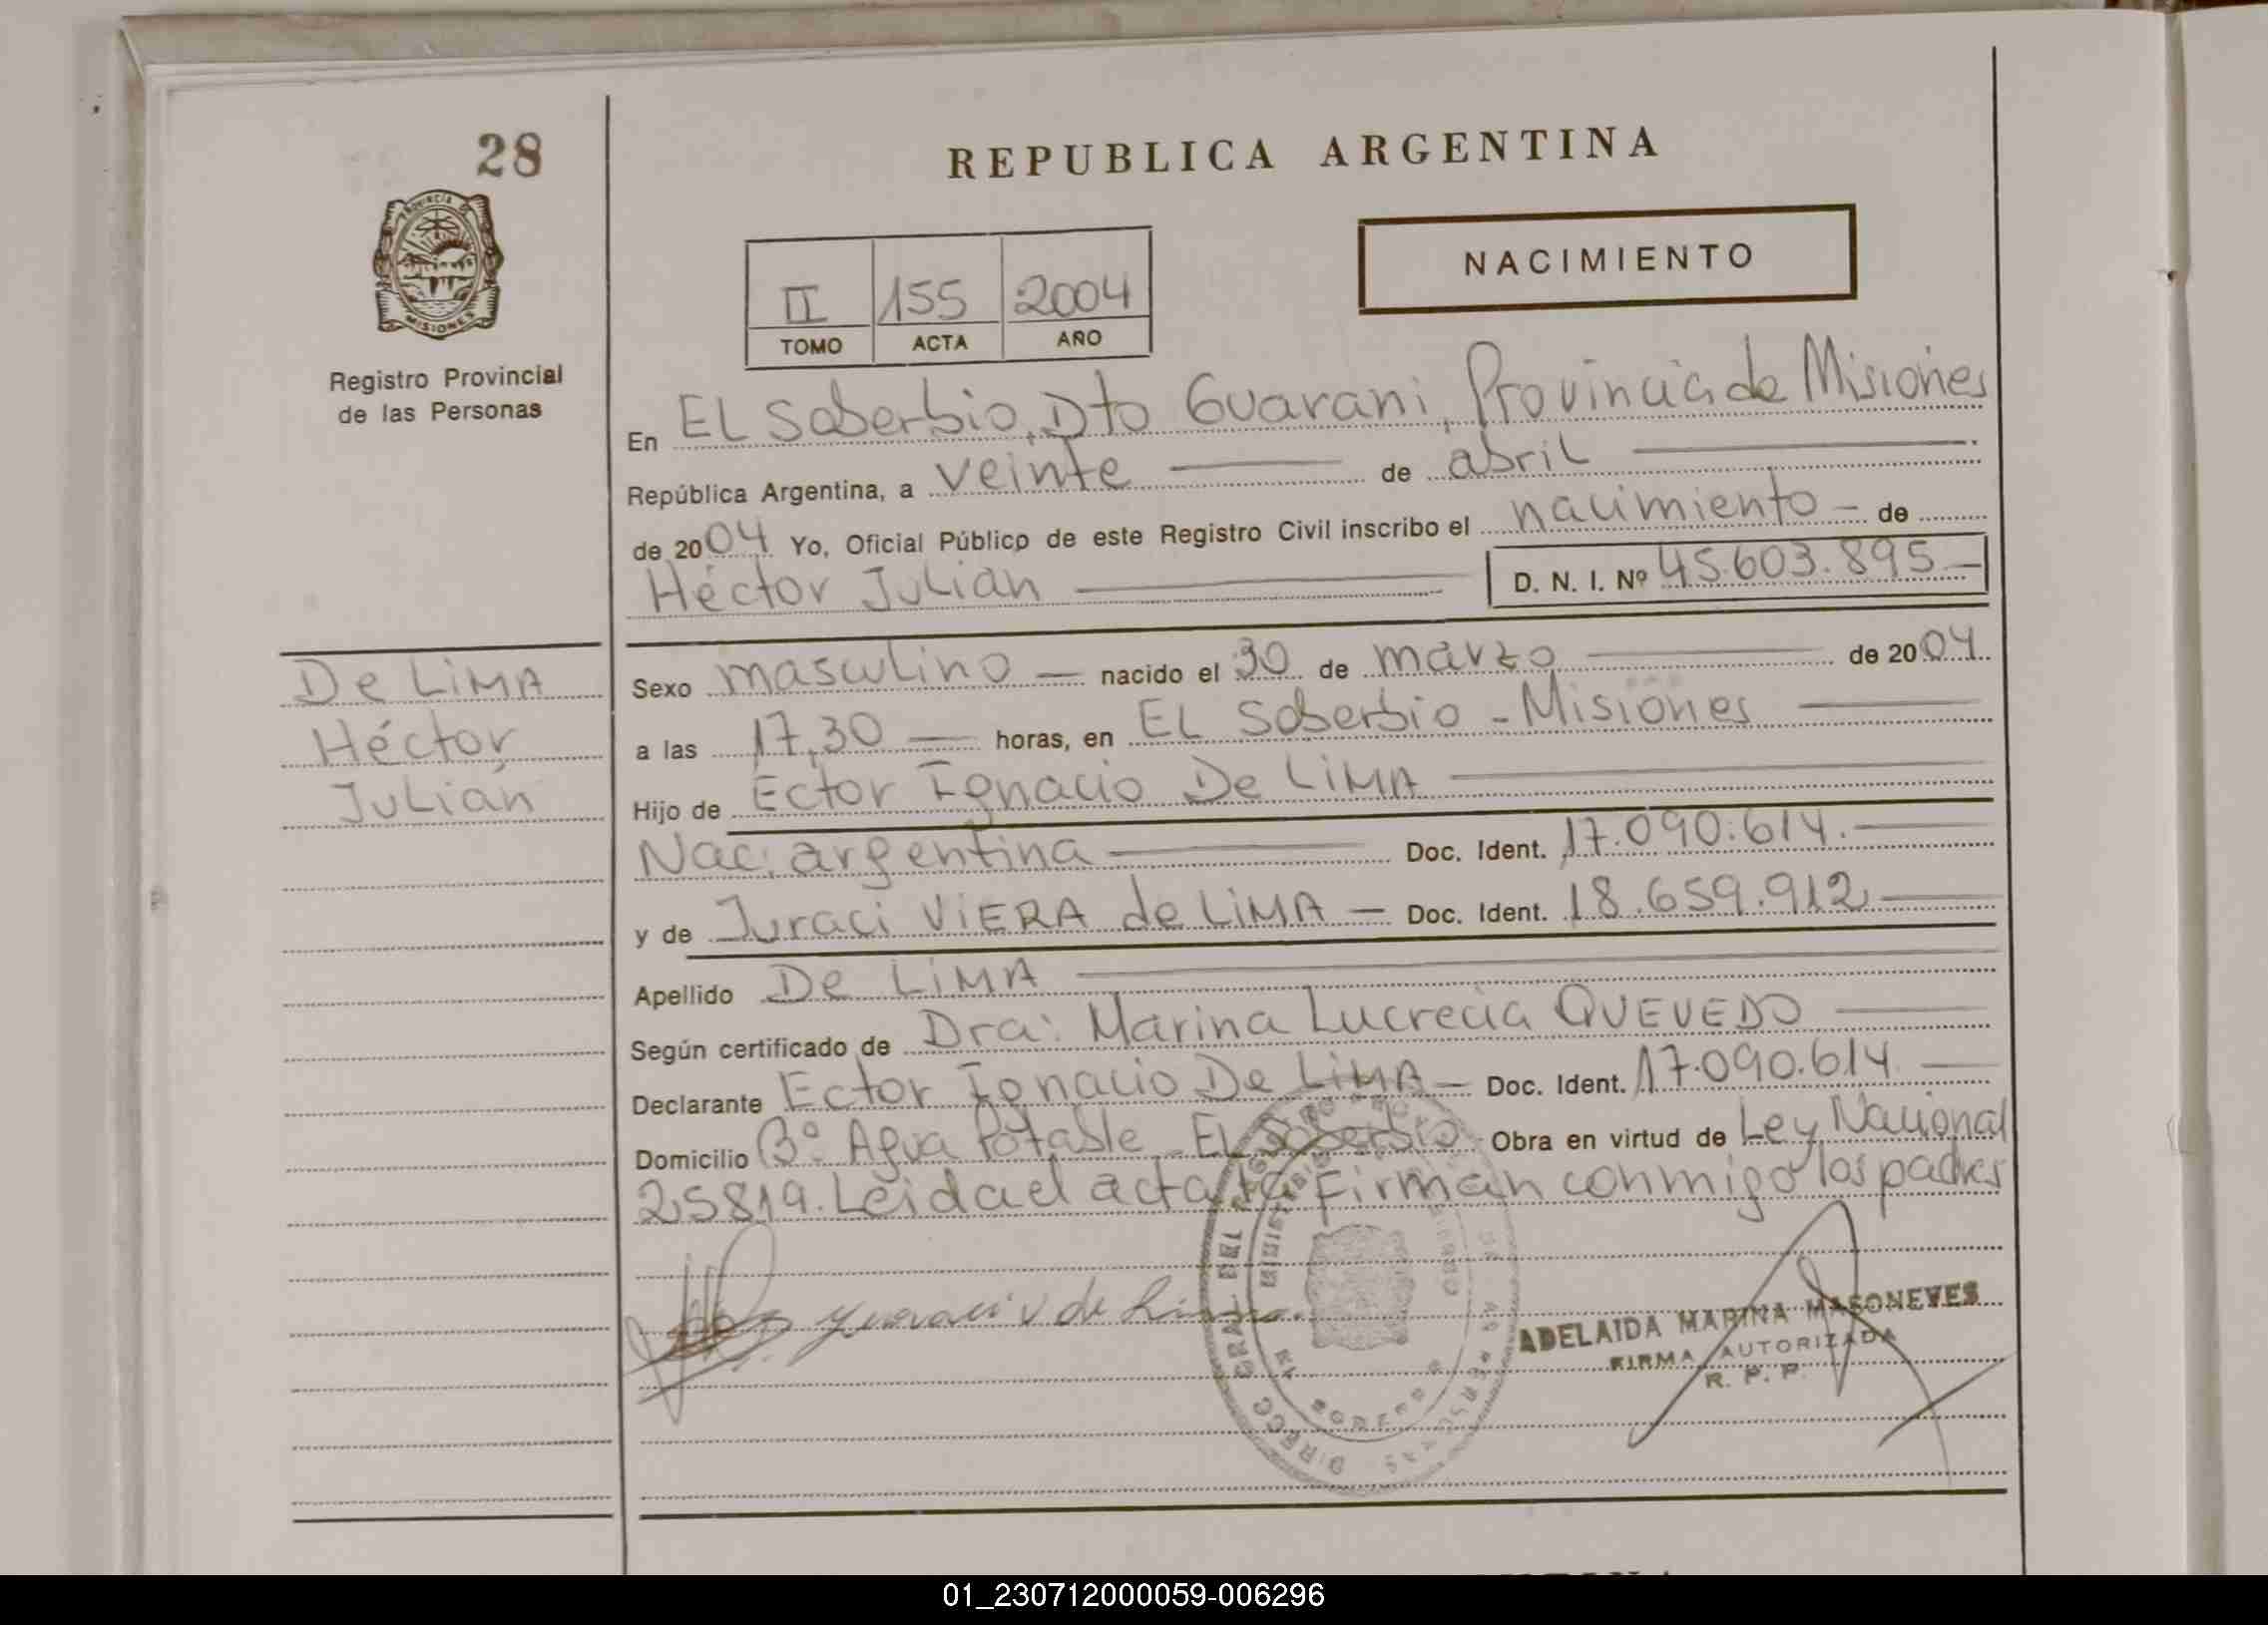 28
REPUBLICA ARGENTINA
NACIMIENTO
II 155 2004
TOMO ACTA AÑO
PROVINCIA DE
MISIONES
Registro Provincial
de las Personas
En EL Soberbio, Dto Guarani, Provincia de Misiones
República Argentina, a veinte — de abril —
de 2004 Yo, Oficial Público de este Registro Civil inscribo el nacimiento — de
Héctor Julián — D. N. I. Nº 45.603.895 —
De LiMA
Héctor
Julián
Sexo masculino — nacido el 30 de marzo — de 2004
a las 17,30 — horas, en EL Soberbio - Misiones —
Hijo de Ector Ignacio De LiMA —
Nac. argentina — Doc. Ident. 17.090.614. —
y de Juraci ViERA de LiMA — Doc. Ident. 18.659.912 —
Apellido De LiMA —
Según certificado de Dra: Marina Lucrecia QUEVEDO —
Declarante Ector Ignacio De LiMA — Doc. Ident. 17.090.614 —
Domicilio Bº Agua Potable - EL Soberbio. Obra en virtud de Ley Nacional
25819. Leida el acta la Firman conmigo los padres
v de Lima.
DIRECC GRAL DEL REGISTRO
ADELAIDA MARINA MASONEVES
FIRMA AUTORIZADA
R. P. P.
01_230712000059-006296